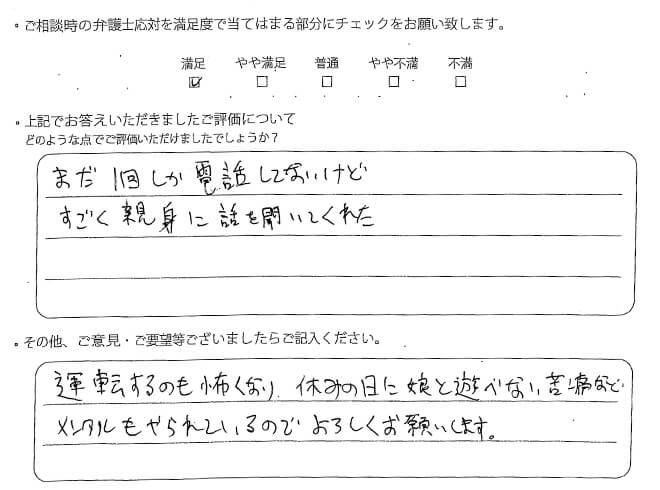 ・ご相談時の弁護士応対を満足度で当てはまる部分にチェックをお願い致します。
満足 やや満足 普通 やや不満 不満
☑ □ □ □ □
・上記でお答えいただきましたご評価について
どのような点でご評価いただけましたでしょうか？
まだ1回しか電話してないけど
すごく親身に話を聞いてくれた
・その他、ご意見・ご要望等ございましたらご記入ください。
運転するのも怖くなり、休みの日に娘と遊べない苦痛など
メンタルもやられているのでよろしくお願いします。